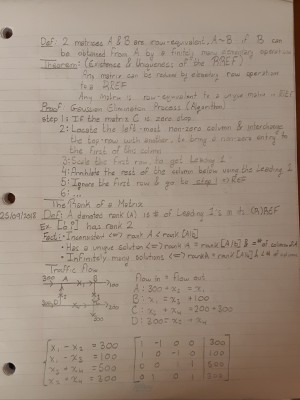 Def: 2 matrices A & B are row-equivalent, A~B if B can
be obtained from A by a finitely many elementary operations
Theorem: (Existence & Uniqueness of the RREF)
Any matrix can be reduced by elementary row operations
to a RREF
Any Matrix is row-equivalent to a unique matrix in RREF
Proof: Gaussian Elimination Process (Algorithm)
step 1: If the matrix C is zero stop.
2: Locate the left-most non-zero column & interchange
the top row with another, to bring a non-zero entry to
the first of this column
3: Scale the first row, to get Leading 1
4: Annihilate the rest of the column below using the Leading 1
5: Ignore the first row & go to step 1 => REF
6:
The Rank of a Matrix
25/09/2018 Def: A denoted rank (A) is # of Leading 1's in its (R)REF
Ex. has rank 2
Fact: • Inconsistent <=> rank A < rank [A|b]
• Has a unique solution <=> rank A = rank [A|b] & = # of columns of A
• Infinitely many solutions <=> rank A = rank [A|b] & < # of columns
Traffic Flow
Flow in = Flow out
300 A
B
200
D
300
A: 300 + x₂ = x₁
B: x₁ = x₃ + 100
C: x₃ + x₄ = 200 + 300
x₁ - x₂ = 300
x₁ - x₃ = 100
x₃ + x₄ = 500
1 -1 0 0 300
1 0 -1 0 100
0 0 1 1 500